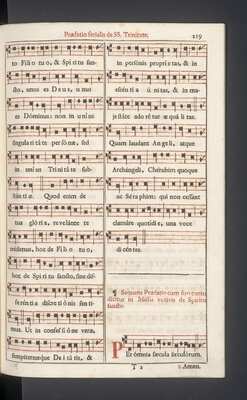 Præfatio ferialis de SS. Trinitate. 219
to Fi li o tu o, & Spi ri tu san-
cto, unus es De us, u nus
es Dóminus: non in u ní us
singula ri tá te per só næ, sed
in uní us Tri ni tá te sub-
stán ti æ. Quod enim de
tua gló ri a, revelánte te
crédimus, hoc de Fí li o tu o,
hoc de Spi ri tu sancto, sine dif-
fe rén ti a discre ti ó nis sen tí-
mus. Ut in confes si ó ne veræ,
sempiternæque De i tá tis, &
in persónis propri e tas, & in
essén ti a ú ni tas, & in ma-
je státe ado ré tur æ quá li tas.
Quam laudant An ge li, atque
Archángeli, Chérubim quoque
ac Séra phim: qui non cessant
clamáre quotidi e, una voce
di cén tes.
¶ Sequens Præfatio cum suo cantu
dicitur in Missa votiva de Spiritu
sancto.
Per ómnia sæcula sæculórum.
T 2 ℟. Amen.